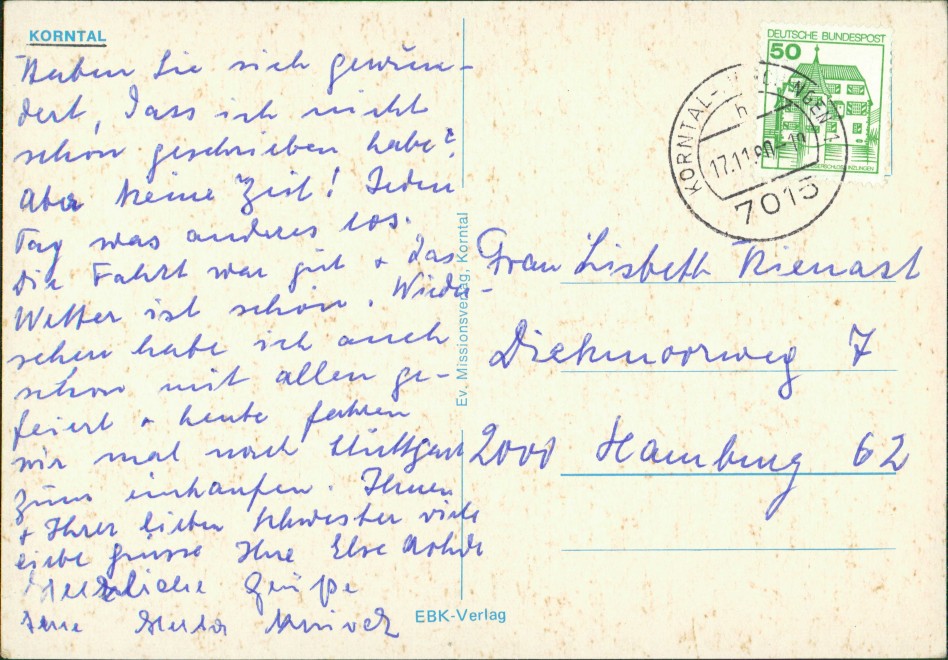 KORNTAL
Haben Sie sich gewun-
dert, dass ich nicht
schon geschrieben habe?
Aber keine Zeit! Jeden
Tag was anderes los.
Die Fahrt war gut + das
Wetter ist schön. Wieder-
sehen habe ich auch
schon mit allen ge-
feiert + heute fahren
wir mal nach Stuttgart
zum einkaufen. Ihnen
+ Ihrer lieben Schwester viele
liebe grüsse Ihre Else
Herzliche Grüße
Ihre Herta
Ev. Missionsverlag, Korntal
EBK-Verlag
DEUTSCHE BUNDESPOST
50
WASSERSCHLOSS INZLINGEN
KORNTAL-MÜNCHINGEN 1
h
17.11.80-18
7015
Frau Lisbeth Kienast
Diekmoorweg 7
2000 Hamburg 62